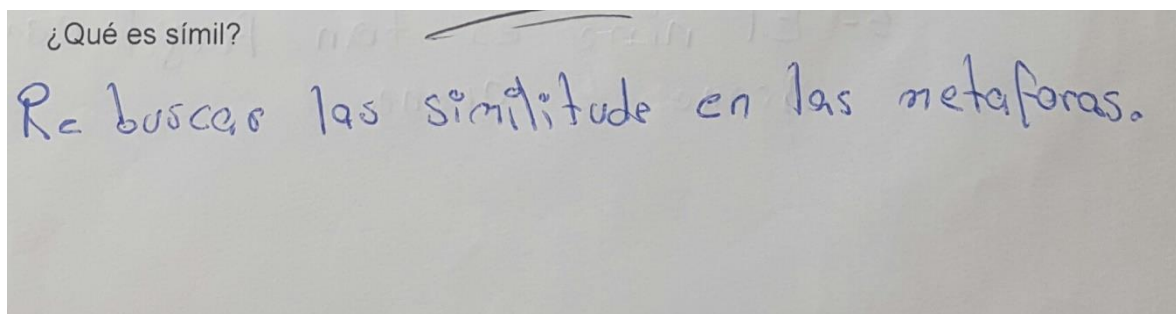 ¿Qué es símil?
Rc buscar las similitude en las metaforas.